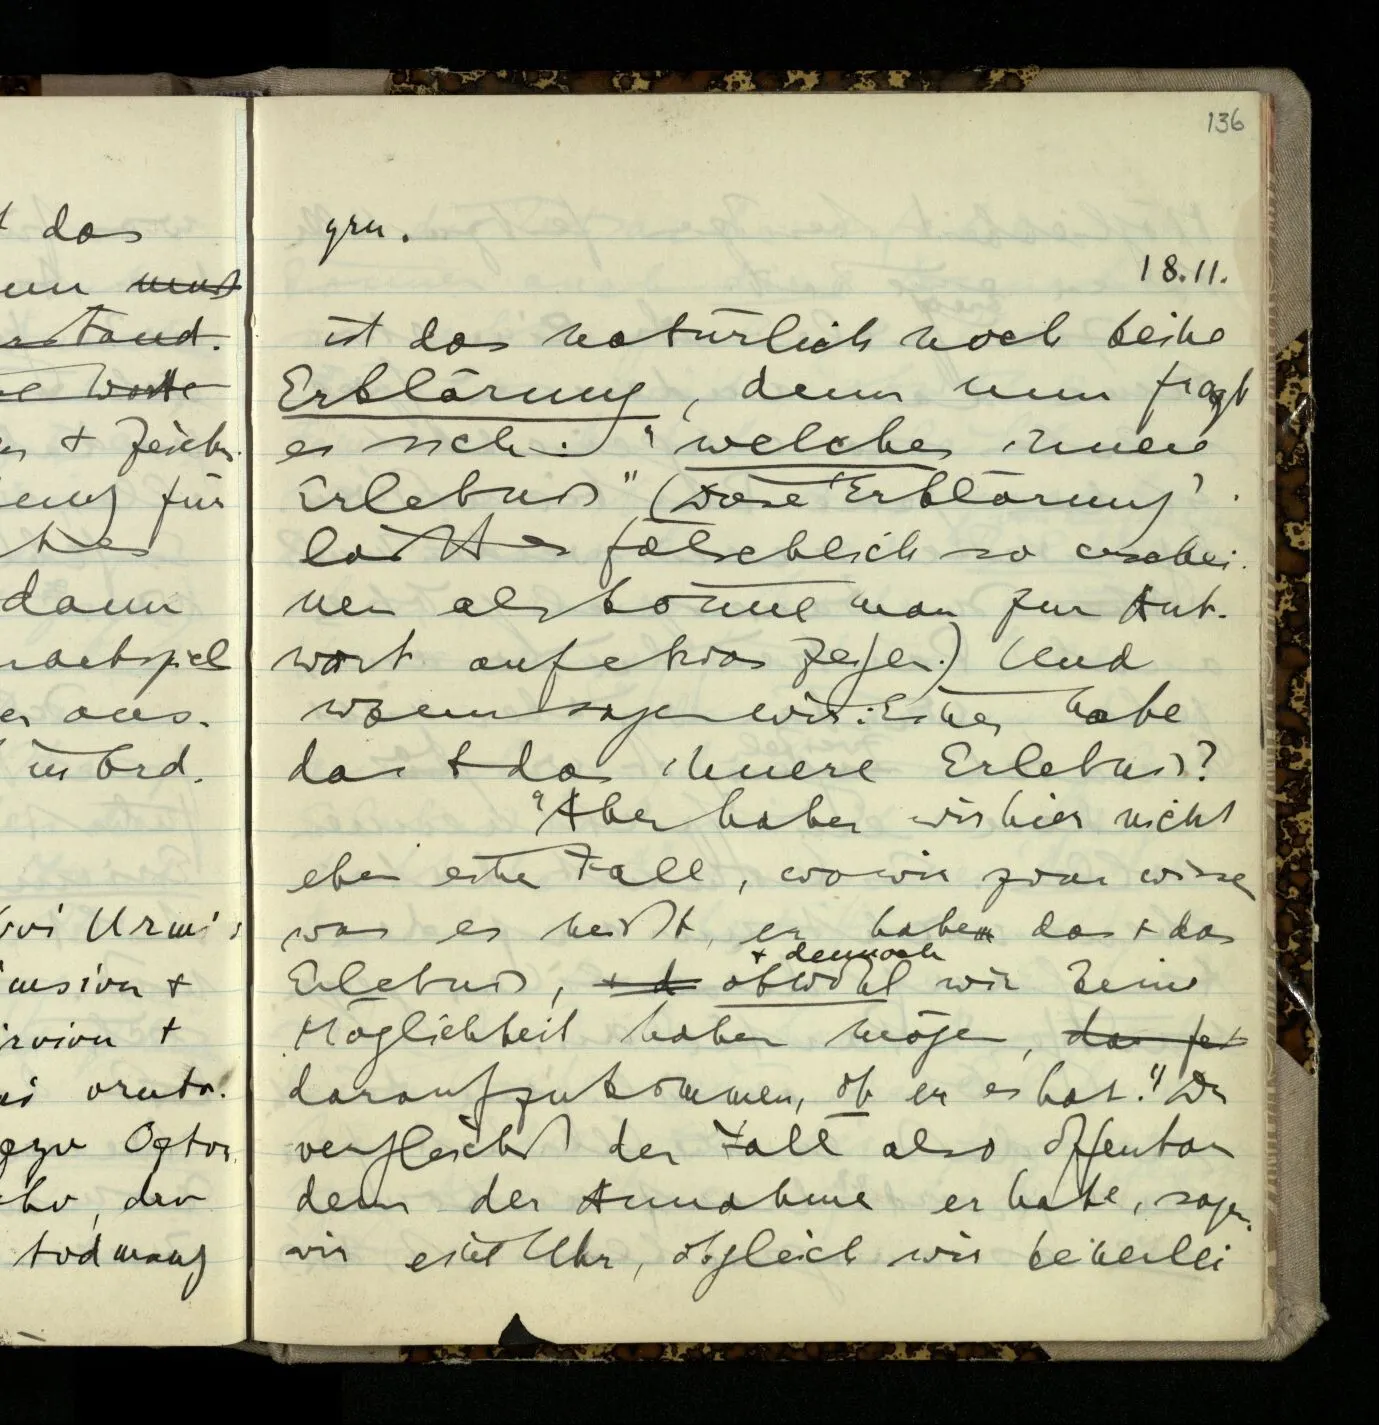 136
t das
nn must
rstand.
ne Worte
n + Zeich-
ung für
dann
rachspiel
er aus-
in Ord-
voi Urmi
imsivn +
irvivn +
mi vrmtr.
gzv Ogtvr
hv, drv
tvdmxng
gru.
18.11.
ist das natürlich noch keine
Erklärung, denn nun fragt
es sich: “welches innere
Erlebnis” (Diese ‘Erklärung’
läßt es fälschlich so erschei-
nen als könne man zur Ant-
wort auf etwas zeigen.) Und
wann sagen wir: Einer habe
das + das innere Erlebnis?
“Aber haben wir hier nicht
eben einen Fall, wo wir zwar wissen
was es heißt, er haben das + das
Erlebnis, + d + dennoch obwohl wir keine
Möglichkeit haben mögen, das fest
daraufzukommen, ob er es hat.” Du
vergleichst den Fall also offenbar
dem der Annahme er habe, sagen
wir eine Uhr, obgleich wir keinerlei